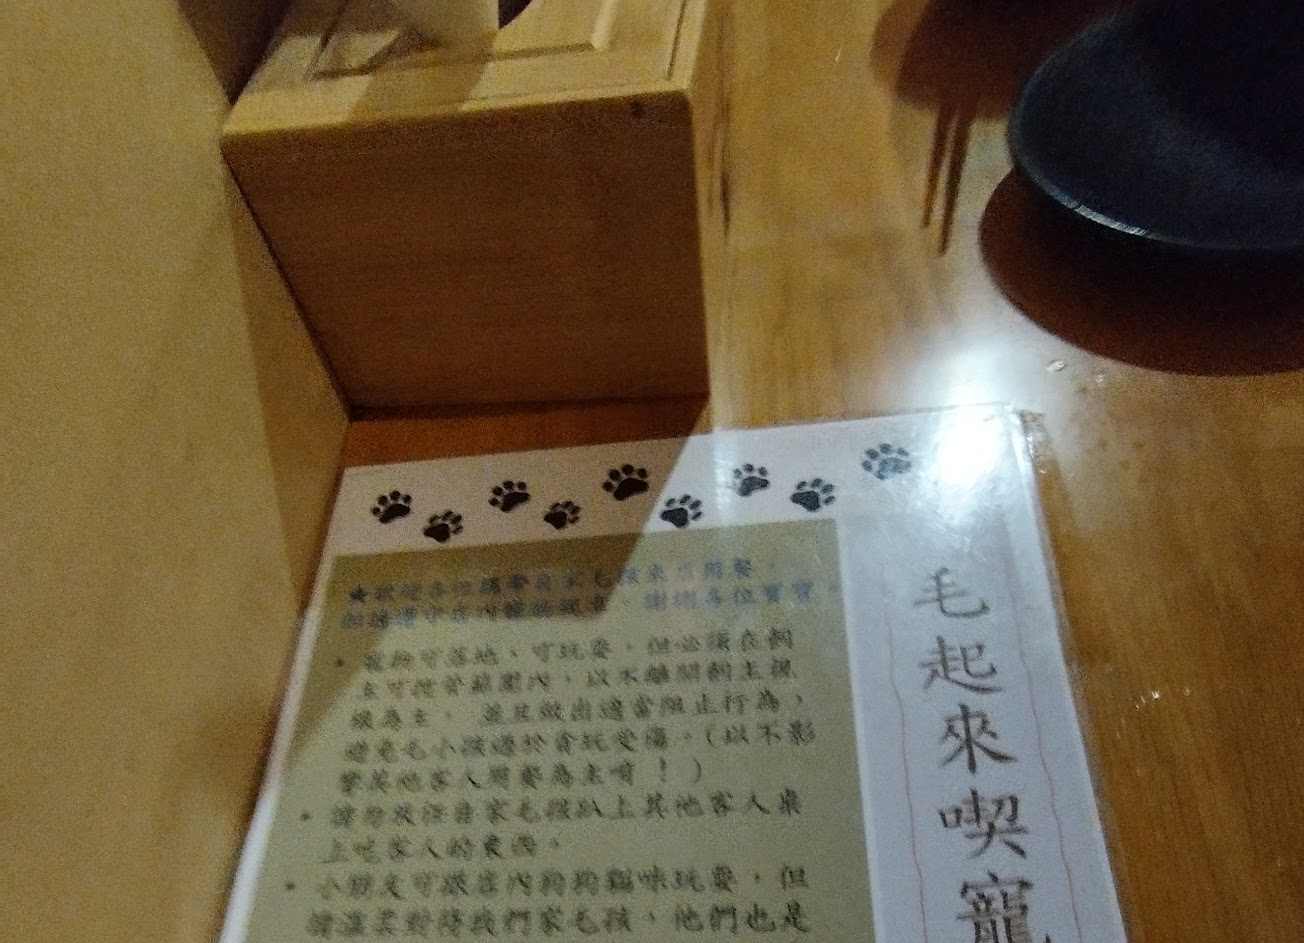 毛起來喫寵
★歡迎各位攜帶自家毛孩來店用餐，
但請遵守店內寵物規定，謝謝各位寶寶。
• 寵物可落地、可玩耍，但必須在飼
主可控管範圍內，以不離開飼主視
線為主， 並且做出適當阻止行為，
避免毛小孩過於貪玩受傷。(以不影
響其他客人用餐為主唷！)
• 請勿放任自家毛孩趴上其他客人桌
上吃客人的東西。
• 小朋友可跟店內狗狗貓咪玩耍，但
請溫柔對待我們家毛孩，他們也是